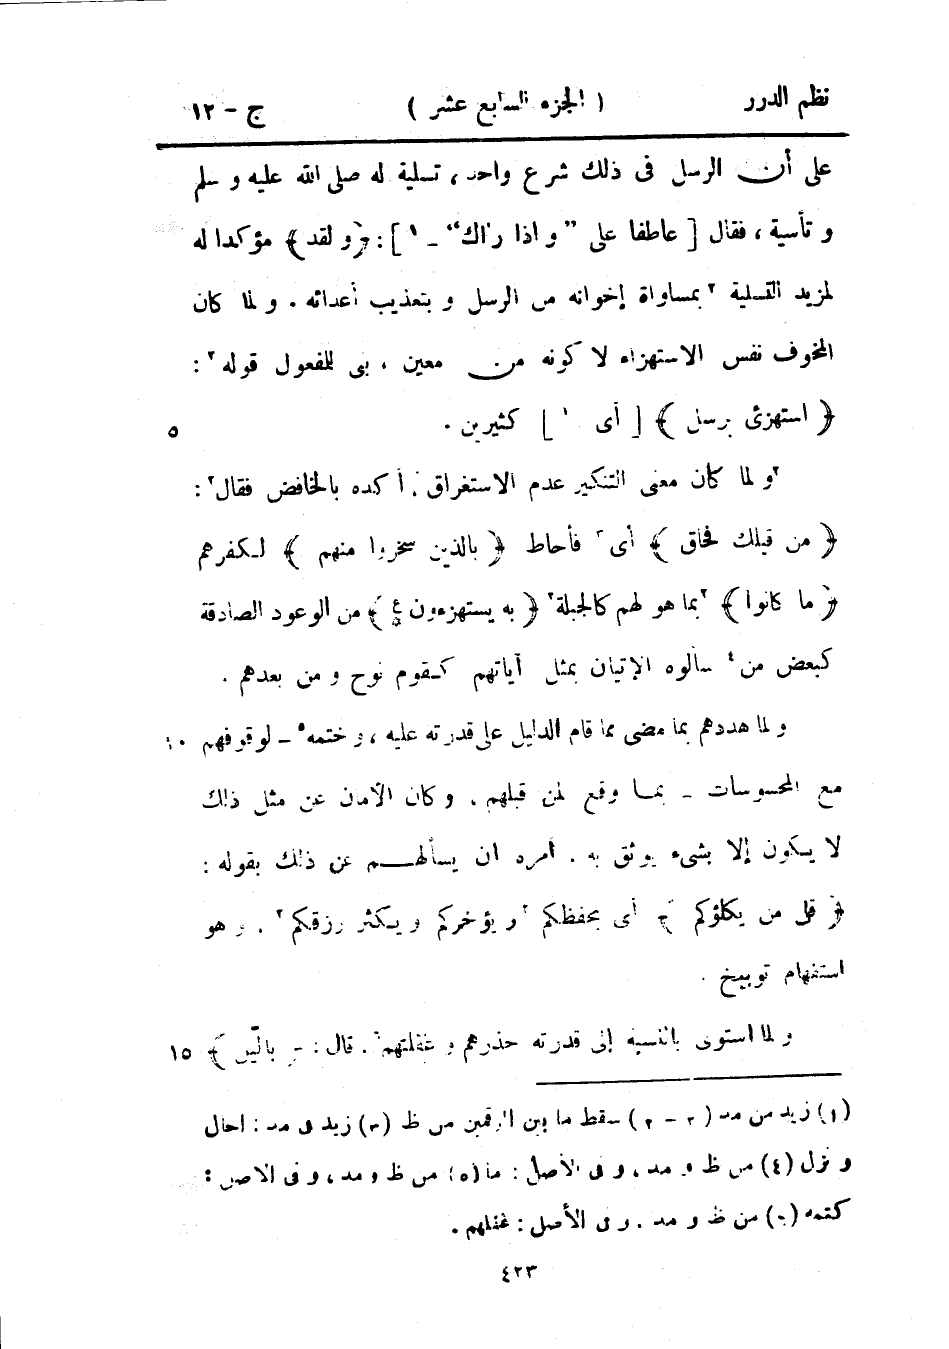 نظم الدرر ( الجزء السابع عشر ) ج - ١٢
على أن الرسل فى ذلك شرع واحد ، تسلية له صلى الله عليه و سلم
و تأسية ، فقال [ عاطفا على ” و اذا رااك “ ـ ١ ] : ﴿ و لقد ﴾ مؤكدا له
لمزيد التسلية ٢ بمساواة إخوانه من الرسل و بتعذيب أعدائه . و لما كان
المخوف نفس الاستهزاء لا كونه من معين ، بنى للمفعول قوله ٢ :
﴿ استهزئ برسل ﴾ [ أى ١ ] كثيرين . ٥
٢ و لما كان معنى التنكير عدم الاستغراق ، أكده بالخافض فقال ٢ :
﴿ من قبلك فحاق ﴾ أى ٣ فأحاط ﴿ بالذين سخروا منهم ﴾ لكفرهم
﴿ ما كانوا ﴾ ٢ بما هو لهم كالجبلة ٢ ﴿ به يستهزءون ع ﴾ من الوعود الصادقة
كبعض من ٤ سألوه الإتيان بمثل آياتهم كقوم نوح و من بعدهم .
و لما هددهم بما مضى مما قام الدليل على قدرته عليه ، و ختمه ٥ ـ لوقوفهم ١٠
مع المحسوسات ـ بما وقع لمن قبلهم ، و كان الأمان عن مثل ذلك
لا يكون إلا بشىء يوثق به ، أمره أن يسألهم عن ذلك بقوله :
﴿ قل من يكلؤكم ﴾ أى يحفظكم ٢ و يؤخركم و يكثر رزقكم ٢ ، و هو
استفهام توبيخ .
و لما استوى بالنسبة إلى قدرته حذرهم و غفلتهم ٦ ، قال : ﴿ باليل ﴾ ١٥
(١) زيد من مد (٢ - ٢) سقط ما بين الرقمين من ظ (٣) زيد فى مد : احال
و نزل (٤) من ظ و مد ، و فى الأصل : ما (٥) من ظ و مد ، و فى الاصل :
كتمه (٦) من ظ و مد ، و فى الأصل : غفلهم .
٤٢٣